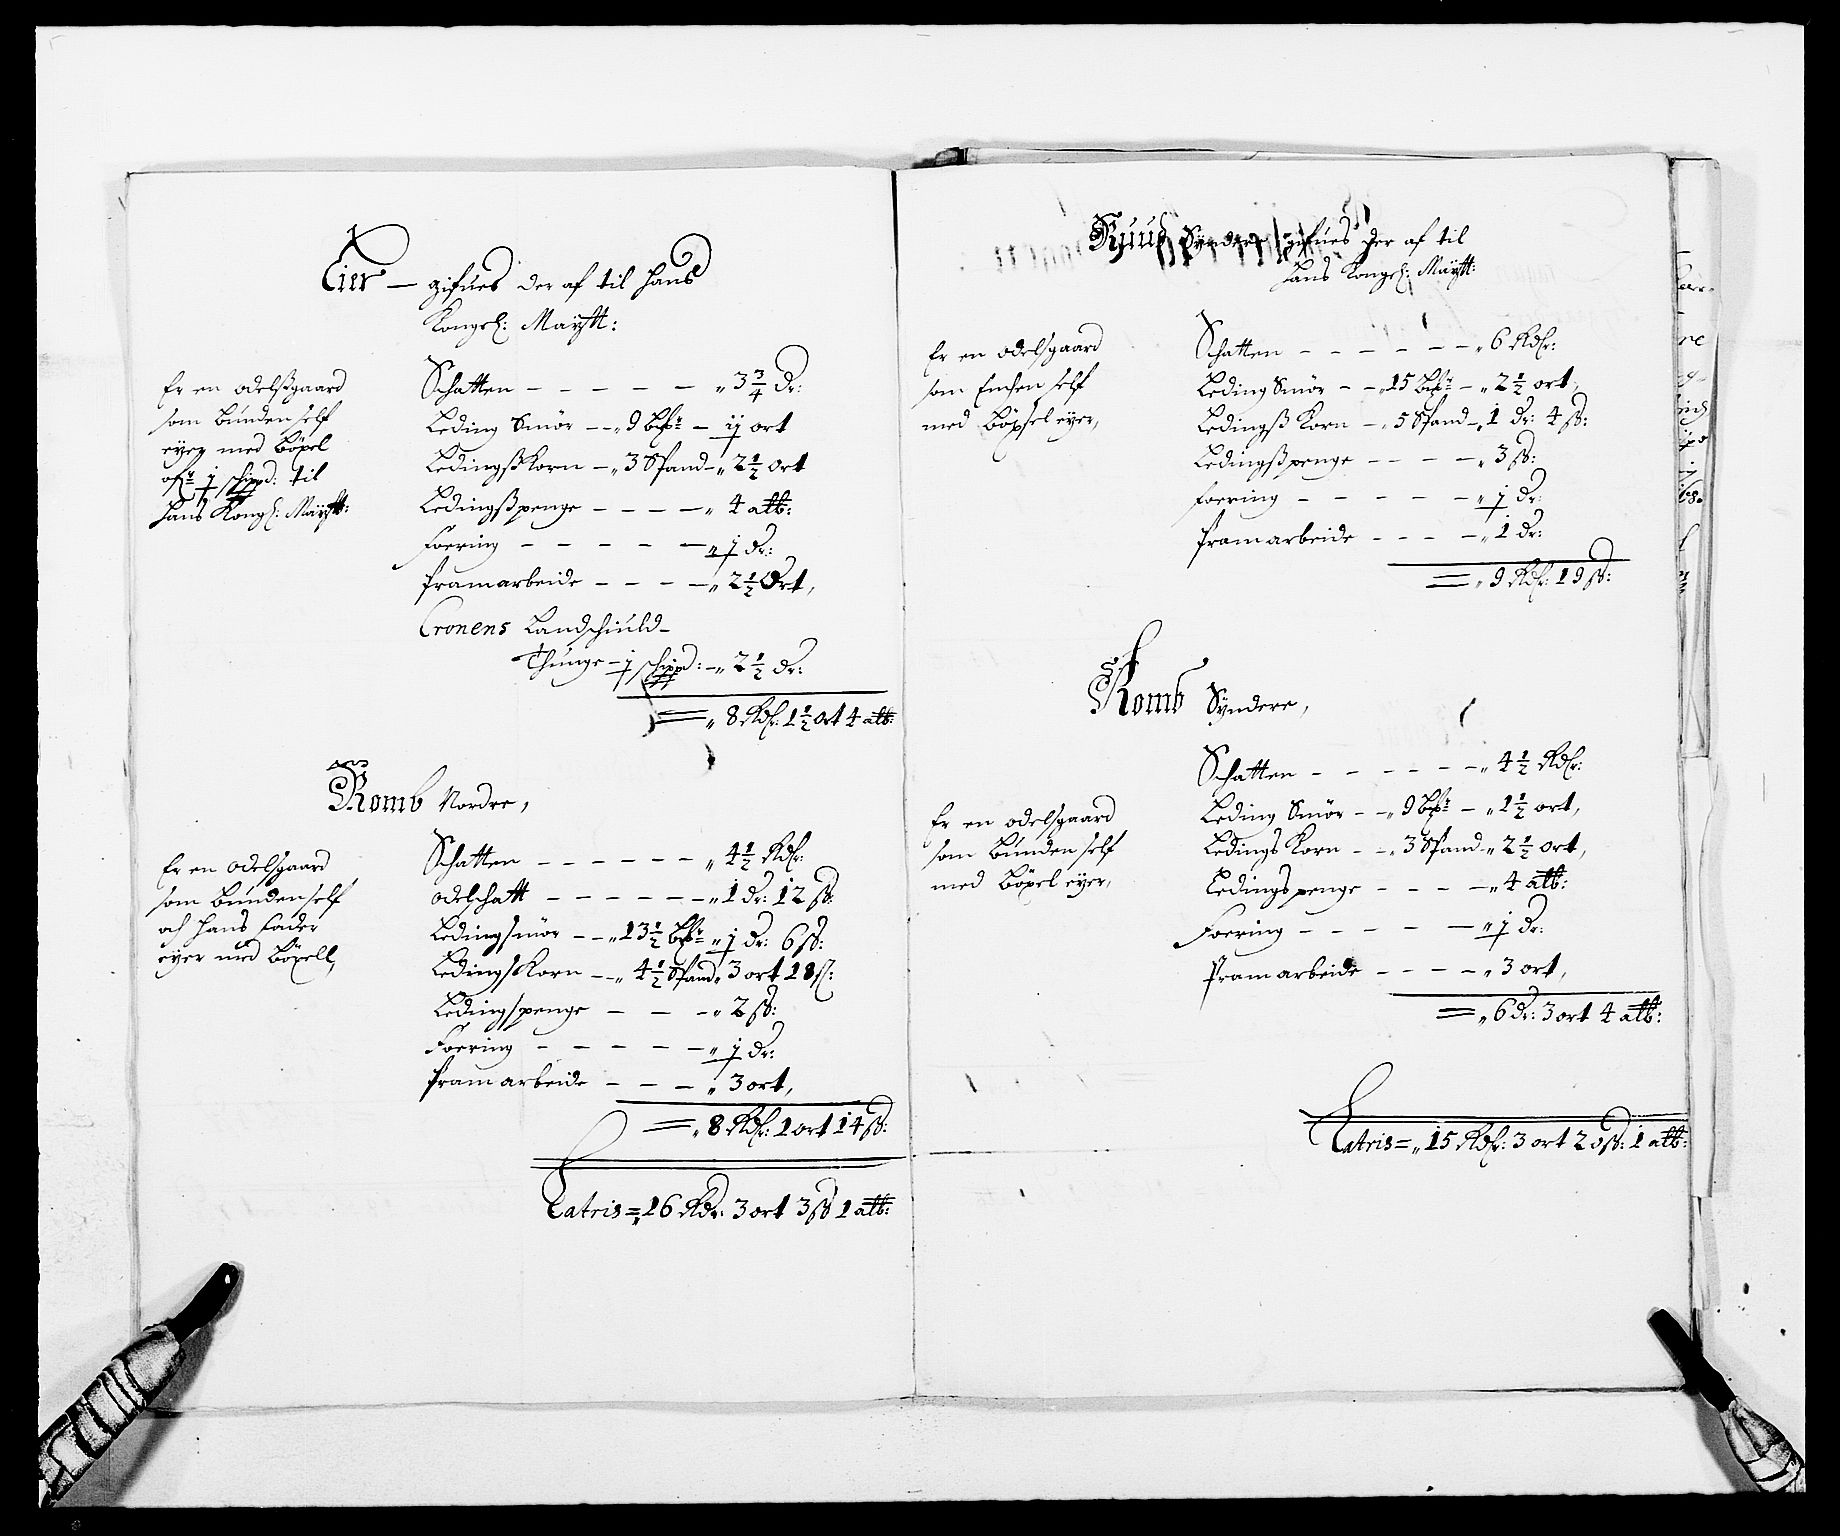 Eier — gifues der af til hans
Kongel: Maÿtt:
Er en odelsgaard
som bunden self
eyer med böxel
ofr 1 schippd: til
hans Kongl: Maÿtt:
Schatten — — — — — „ 3 3/4 dr:
Leding Smör — „ 9 Bpr — 1 ort
Ledingß Korn — „ 3 Spand — „ 2 1/2 ort
Ledingßpenge — — — — „ 4 alb:
Foering — — — — — „ 1 dr:
Pramarbeide — — — — „ 2 1/2 Ort,
Cronens Landschiuld —
Thunge — 1 schippd: — „ 2 1/2 dr:
= „ 8 Rdr: 1 1/2 ort 4 alb:
Romb Nordre,
Er en odelsgaard
som bunden self
och hans fader
eyer med böxell,
Schatten — — — — — „ 4 1/2 Rdr:
odelschatt — — — — — „ 1 dr: 12 ß:
Ledingsmör — „ 13 1/2 Bpr „ 1 dr: 6 ß:
Ledings Korn — „ 4 1/2 Spand „ 3 ort 18 ß:
Ledingspenge — — — „ 2 ß:
Foering — — — — — „ 1 dr:
Pramarbeide — — — „ 3 ort,
= „ 8 Rdr: 1 ort 14 ß:
Latris = „ 16 Rdr: 3 ort 3 ß 1 alb:
Ruud Syndere gifues der af til
hans Kongel: Maÿtt:
Er en odelsgaard
som Enchen self
med Böxsel eyer,
Schatten — — — — — „ 6 Rdr:
Leding Smör — „ 15 Bpr — „ 2 1/2 ort,
Ledingß Korn — „ 5 Spand — „ 1 dr: 4 ß:
Ledingßpenge — — — — „ 3 ß:
Foering — — — — — „ 1 dr:
Pramarbeide — — — — „ 1 dr:
= „ 9 Rdr: 19 ß:
Romb Syndere,
Er en odelsgaard
som bunden self
med böxel eyer,
Schatten — — — — — „ 4 1/2 Rdr:
Leding Smör — „ 9 Bpr — „ 1 1/2 ort,
Ledings Korn — „ 3 Spand „ 2 1/2 ort,
Ledingspenge — — — — „ 4 alb:
Foering — — — — — „ 1 dr:
Pramarbeide — — — — „ 3 ort,
= „ 6 dr: 3 ort 4 alb:
Latris = „ 15 Rdr: 3 ort 20 ß: 1 alb: